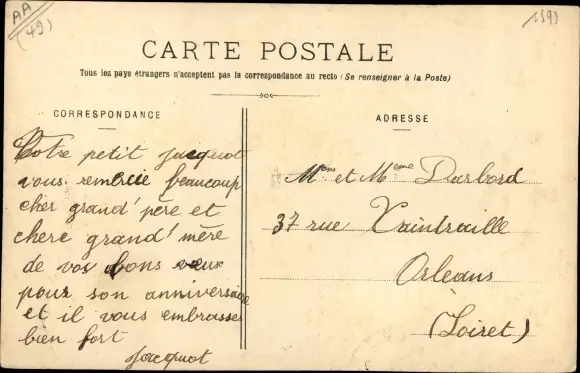 AA
(49)
1593
CARTE POSTALE
Tous les pays étrangers n'acceptent pas la correspondance au recto (Se renseigner à la Poste)
CORRESPONDANCE
Votre petit Jacquot
vous remercie beaucoup
cher grand' père et
chere grand' mère
de vos bons vœux
pour son anniversaire
et il vous embrasse
bien fort
Jacquot
ADRESSE
Mr et Mme Darbord
37 rue Xaintraille
Orleans
(Loiret)